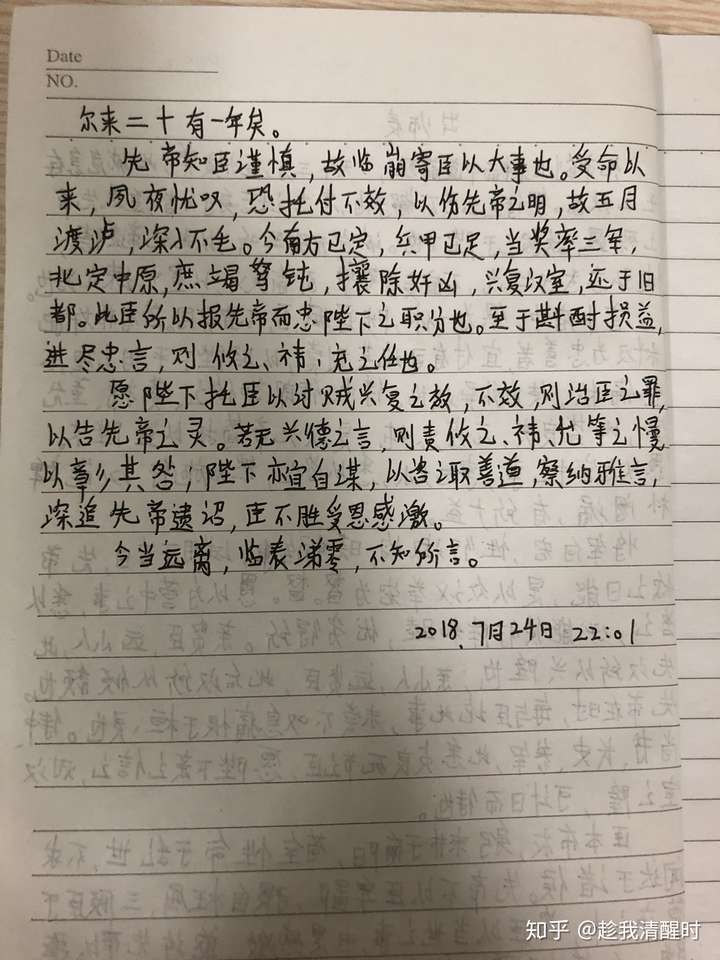 Date
NO.
尔来二十有一年矣。
先帝知臣谨慎，故临崩寄臣以大事也。受命以
来，夙夜忧叹，恐托付不效，以伤先帝之明，故五月
渡泸，深入不毛。今南方已定，兵甲已足，当奖率三军，
北定中原，庶竭驽钝，攘除奸凶，兴复汉室，还于旧
都。此臣所以报先帝而忠陛下之职分也。至于斟酌损益，
进尽忠言，则攸之、祎、允之任也。
愿陛下托臣以讨贼兴复之效，不效，则治臣之罪，
以告先帝之灵。若无兴德之言，则责攸之、祎、允等之慢，
以彰其咎；陛下亦宜自谋，以咨诹善道，察纳雅言，
深追先帝遗诏，臣不胜受恩感激。
今当远离，临表涕零，不知所言。
2018.7月24日 22:01
知乎 @趁我清醒时